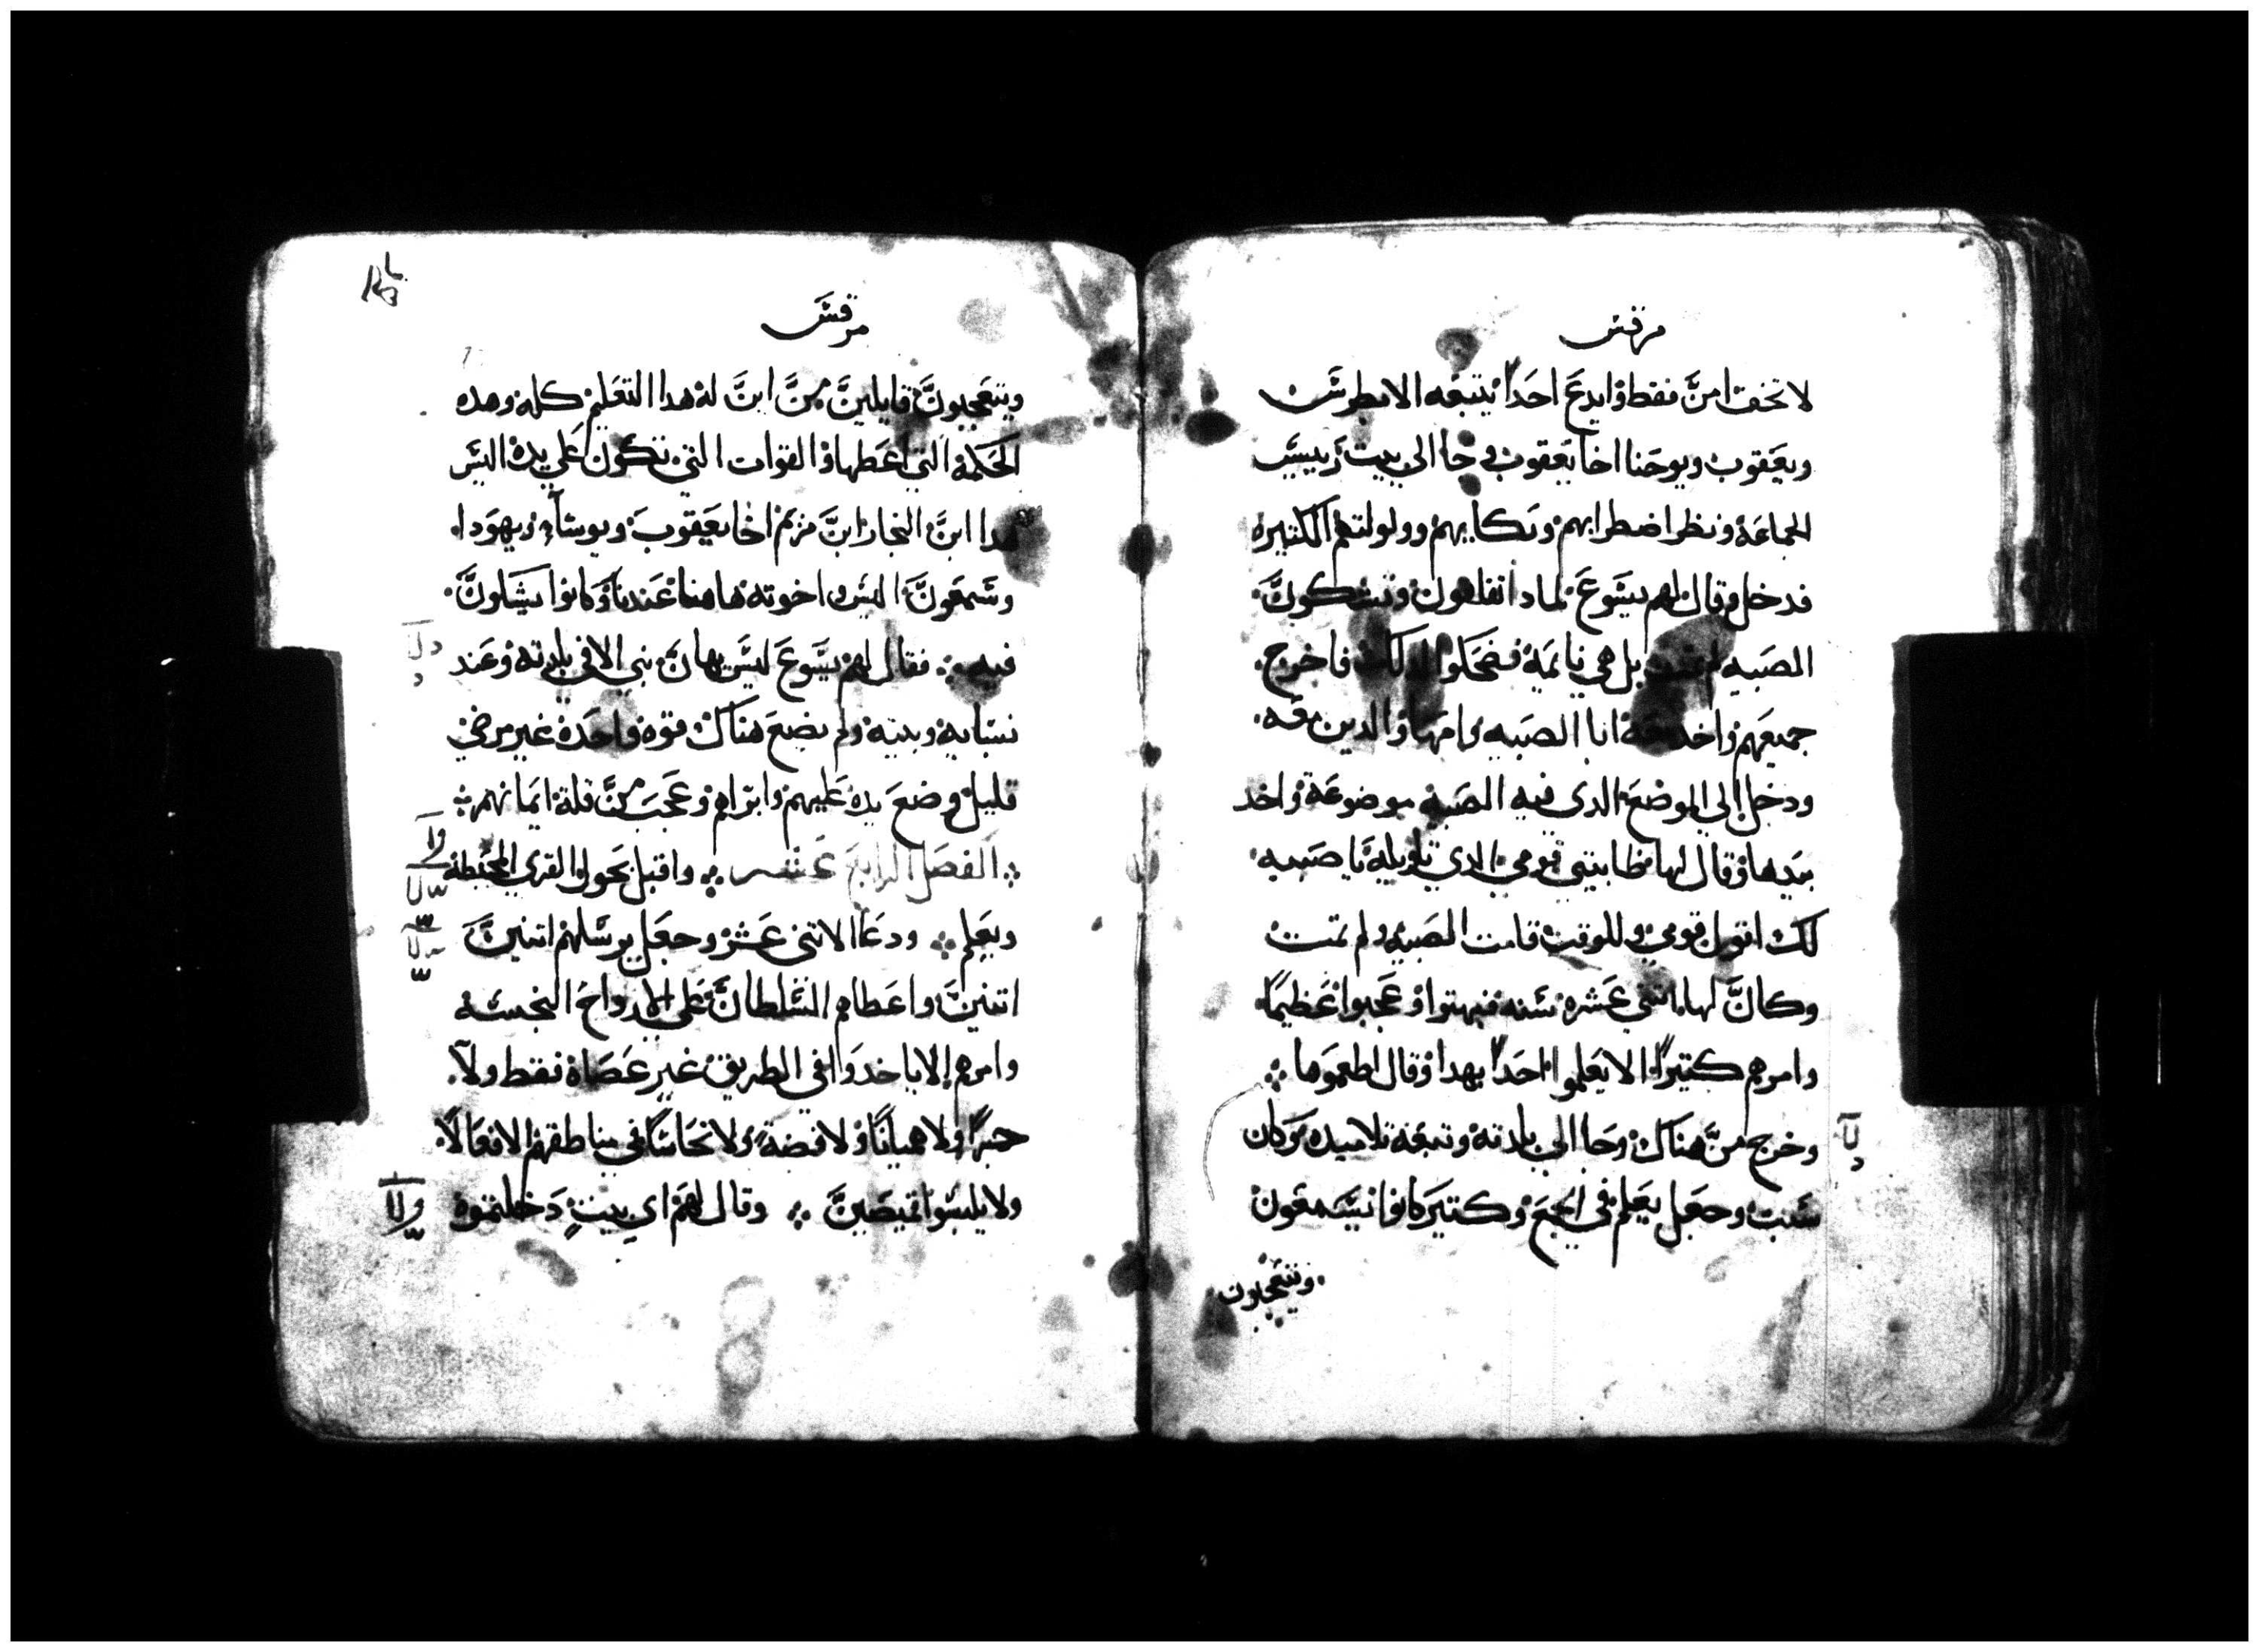 مرقس
لا تخف امن فقط ولم يدع احدا يتبعه الا بطرس
ويعقوب ويوحنا اخا يعقوب وجا الى بيت رييس
الجماعة ونظر اضطرابهم وبكايهم وولولتهم الكتيره
فدخل وقال لهم يسوع لمادا تقلقون وتبكون
الصبيه لم تمت بل هي نايمة فضحكوا لدلك فاخرج
جميعهم واخد معه ابا الصبيه وامها والدين معه
ودخل الي الموضع الدي فيه الصبيه موضوعة واخد
بيدها وقال لها طابيتي قومي الدي تاويله يا صبيه
لك اقول قومي وللوقت قامت الصبيه ولم تمت
وكان لها اتني عشره سنه فبهتوا وعجبوا عظيما
وامرهم كتيرا الا يعلموا احدا بهدا وقال اطعموها
وخرج من هناك وجا الى بلدته وتبعته تلاميده وكان
سبت وجعل يعلم في الجمع وكتير كانوا يسمعون
ويتعجبون
مرقس
ويتعجبون قايلين من اين له هدا التعليم كله وهده
الحكمة التي اعطها والقوات التي تكون علي يده اليس
هدا ابن النجار ابن مريم اخا يعقوب ويوسا ويهودا
وسمعون اليس اخوته هاهنا عندنا وكانوا يشكون
فيه فقال لهم يسوع ليس يهان نبي الا في بلدته وعند
نسابه وبيته ولم يضع هناك قوه واحدة غير مرضي
قليل وضع يده عليهم وابراهم وعجب من قلة ايمانهم
الفصل الرابع عشر واقبل يحول القري المحيطة
ويعلم ودعا الاتني عشر وجعل يرسلهم اتنين
اتنين واعطاهم السلطان على الارواح النجسه
وامرهم الا ياخدوا في الطريق غير عصاة فقط ولا
خبزا ولا هميانا ولا فضة ولا نحاسا في مناطقهم الا نعالا
ولا يلبسوا قميصين وقال لهم اي بيت دخلتموه